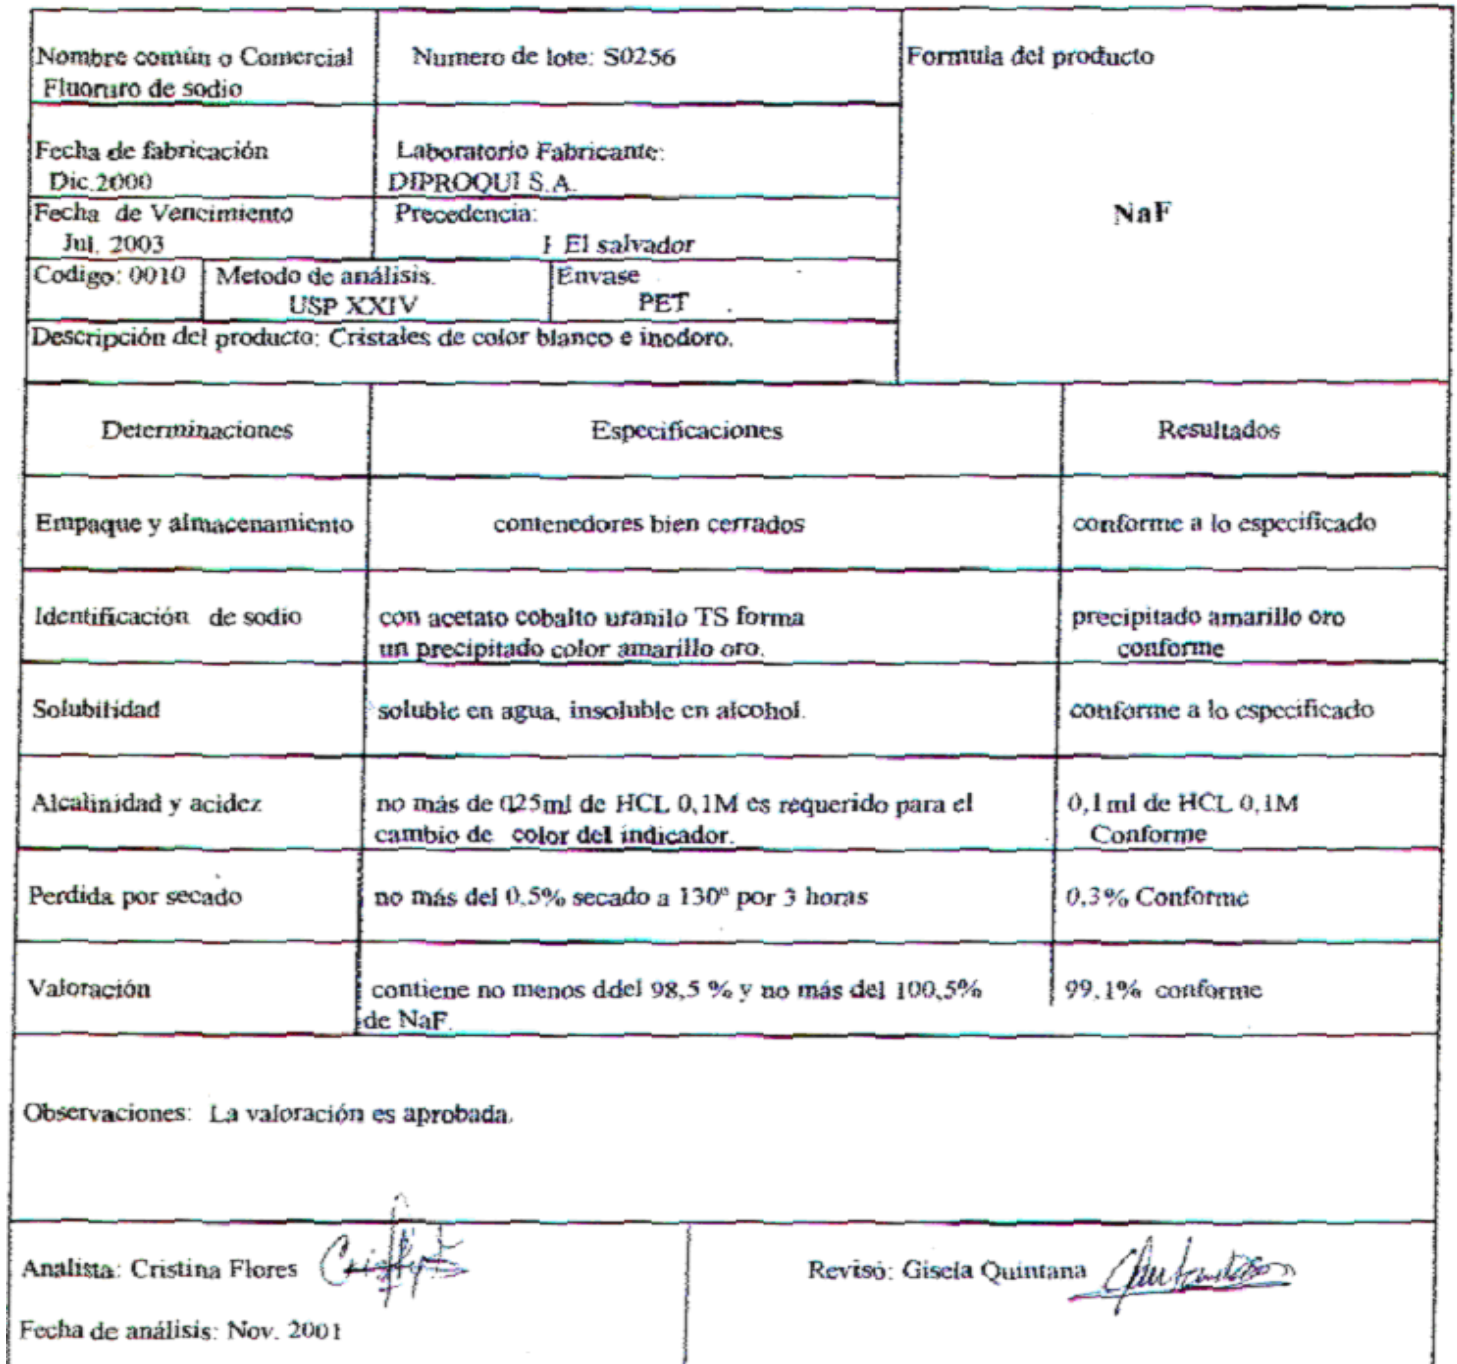 Nombre común o Comercial
Fluoruro de sodio
Numero de lote: S0256
Formula del producto
Fecha de fabricación
Dic.2000
Laboratorio Fabricante:
DIPROQUI S.A.
Fecha de Vencimiento
Jul. 2003
Precedencia:
El salvador
NaF
Codigo: 0010
Metodo de análisis.
USP XXIV
Envase
PET
Descripción del producto: Cristales de color blanco e inodoro.
Determinaciones
Especificaciones
Resultados
Empaque y almacenamiento
contenedores bien cerrados
conforme a lo especificado
Identificación de sodio
con acetato cobalto uranilo TS forma
un precipitado color amarillo oro.
precipitado amarillo oro
conforme
Solubilidad
soluble en agua, insoluble en alcohol.
conforme a lo especificado
Alcalinidad y acidez
no más de 025ml de HCL 0,1M es requerido para el
cambio de color del indicador.
0,1ml de HCL 0,1M
Conforme
Perdida por secado
no más del 0.5% secado a 130º por 3 horas
0,3% Conforme
Valoración
contiene no menos ddel 98,5 % y no más del 100,5%
de NaF.
99,1% conforme
Observaciones: La valoración es aprobada.
Analista: Cristina Flores
Revisó: Gisela Quintana
Fecha de análisis: Nov. 2001